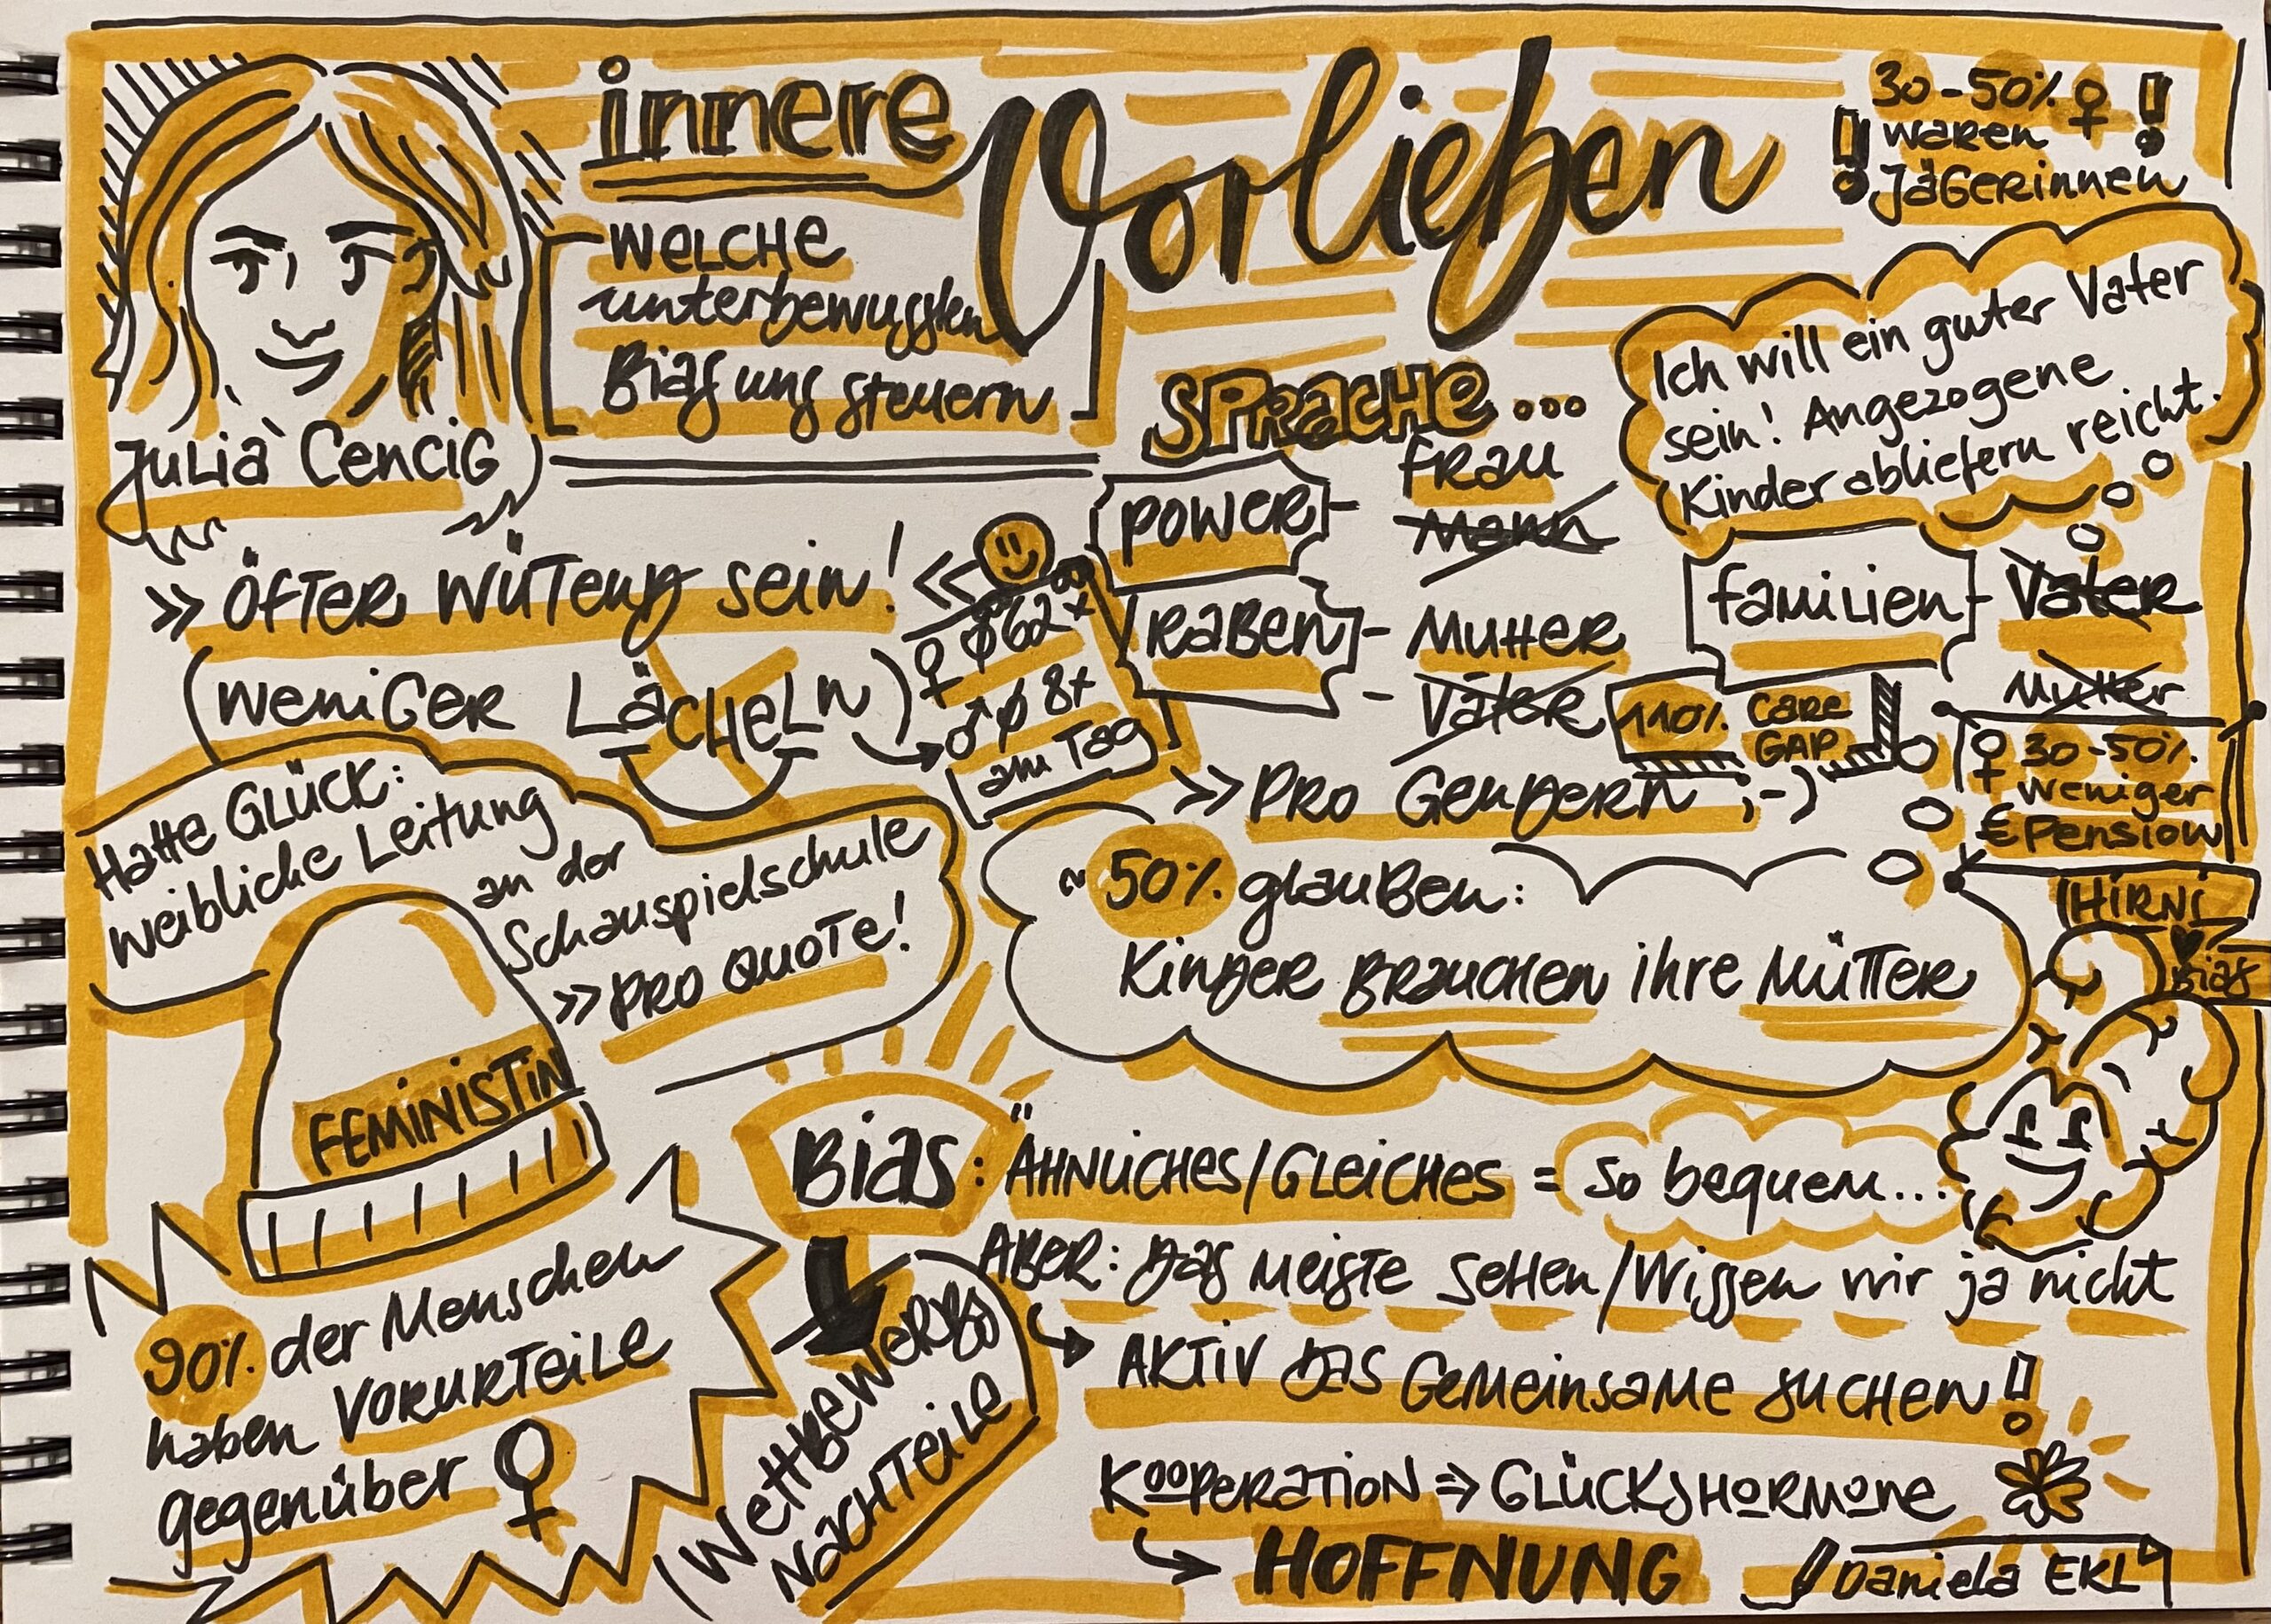 innere Vorlieben
WELCHE
unterbewussten
Bias uns steuern
Julia Cencig
30-50% ♀
waren
Jägerinnen
» ÖFTER WÜTEND sein! «
(weniGER LÄCHELN)
♀ ø 62x
♂ ø 8x
am Tag
SPRACHE...
POWER - FRAU
Mann
RABEN - MUTTER
- VÄTER
Ich will ein guter Vater
sein! Angezogene
Kinder abliefern reicht.
familien - Vater
Mutter
110% CARE
GAP
♀ 30-50%
weniger
€ Pension
» PRO GENDERN ;-)
Hatte GLÜCK:
weibliche Leitung
an der
Schauspielschule
» PRO QUOTE!
FEMINISTIN
~ 50% glauben:
Kinder BRAUCHEN ihre MÜTTER
HIRNI
♥
Bias
BIAS: ÄHNLICHES/GLEICHES = so bequem...
ABER: Das meiste SEHEN/Wissen wir ja nicht
AKTIV DAS GEMEINSAME SUCHEN!
KOOPERATION ⇒ GLÜCKSHORMONE
HOFFNUNG
90% der Menschen
haben VORURTEILE
gegenüber ♀
WETTBEWERBS
NACHTEILE
Daniela EKL